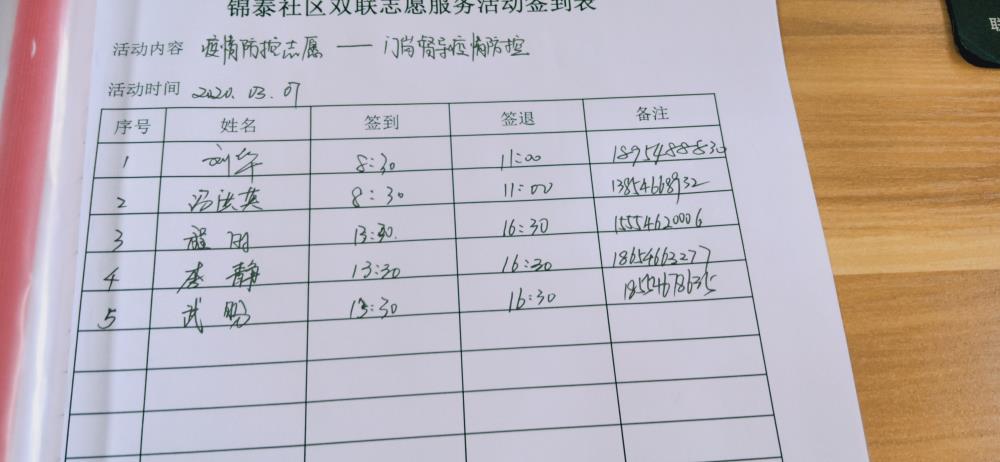 锦泰社区双联志愿服务活动签到表
活动内容 疫情防控志愿 — 门岗督导疫情防控
活动时间 2020.03.07
序号 姓名 签到 签退 备注
1 刘华 8:30 11:00 18954888830
2 冯洪英 8:30 11:00 13854668932
3 程雨 13:30 16:30 15554620006
4 李静 13:30 16:30 18654663277
5 武 13:30 16:30 18554678635
联